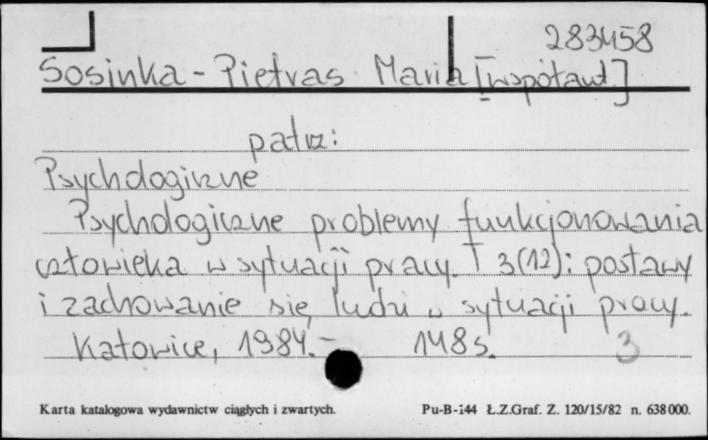 283458
Sosinka-Pietras Maria [współaut.]
patrz:
Psychologiczne
Psychologiczne problemy funkcjonowania
człowieka w sytuacji pracy. T 3(12): postawy
i zachowanie się ludzi w sytuacji pracy.
Katowice, 1984.- 148s. 3
Karta katalogowa wydawnictw ciągłych i zwartych. Pu-B-144 Ł.Z.Graf. Z. 120/15/82 n. 638000.